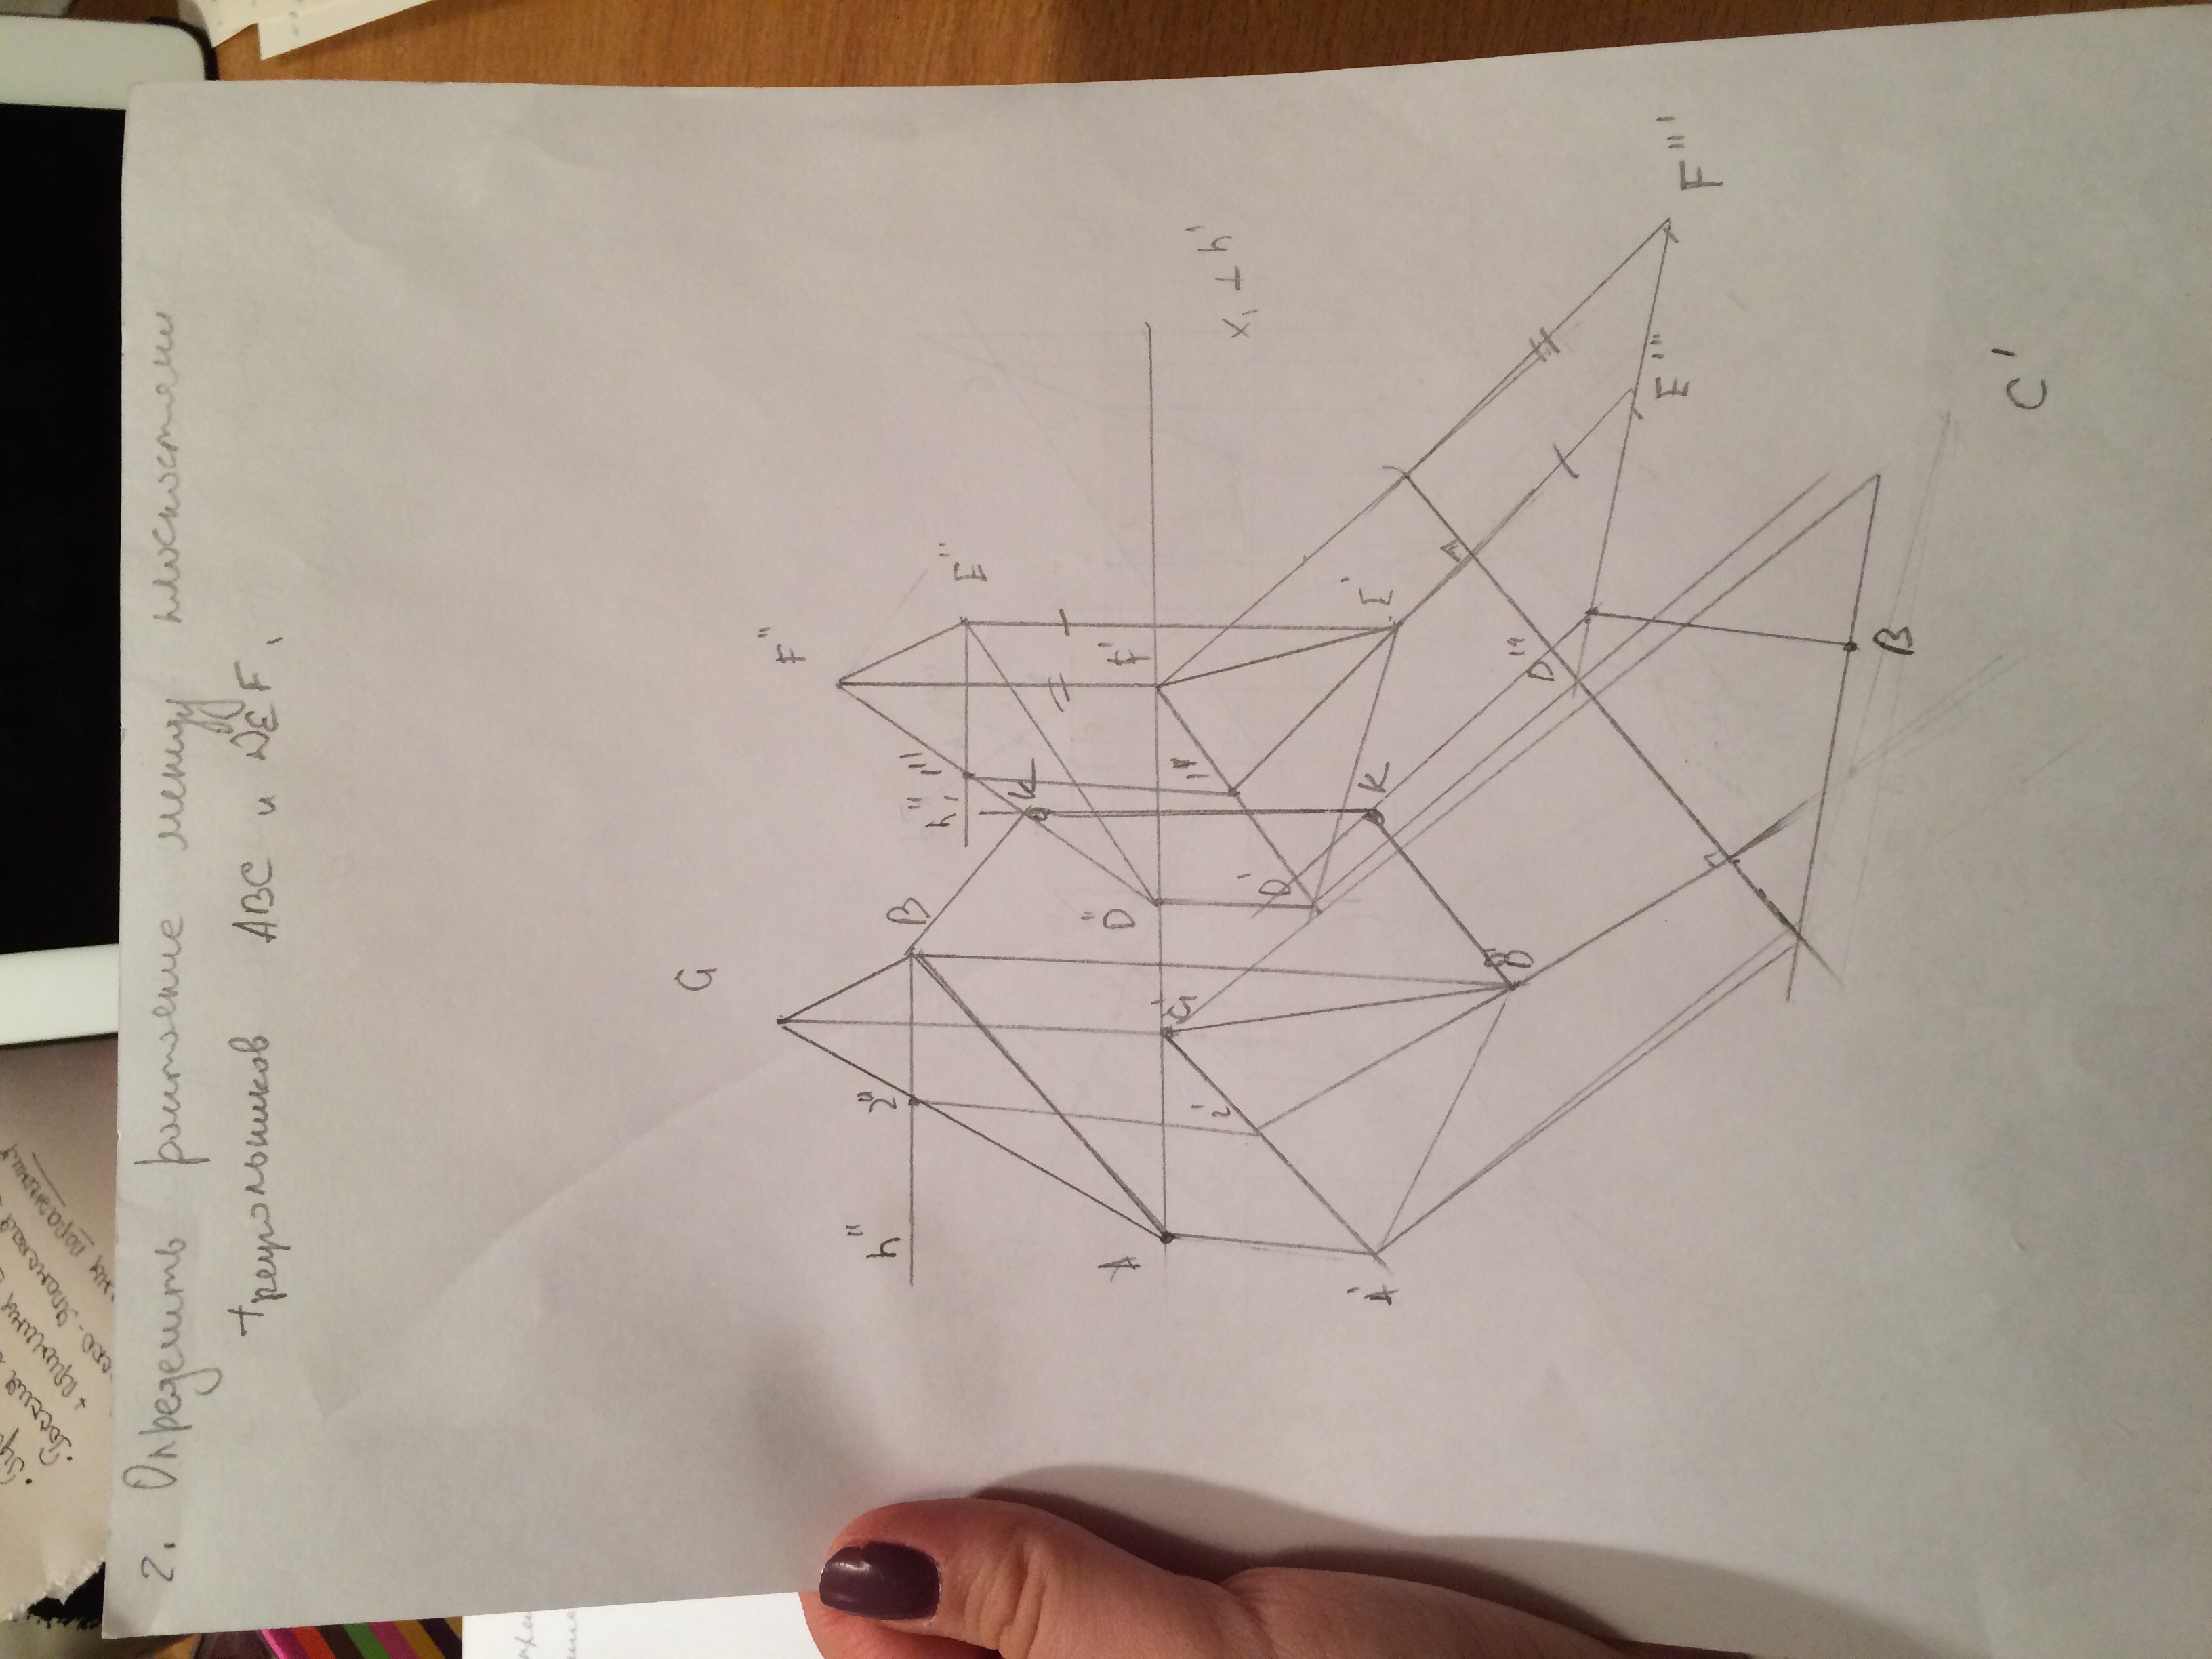 2. Определить расстояние между плоскостями
треугольников ABC и DEF.
G
F"
h"
2"
B
h₁"
1"
E"
K
A
D"
F'
G'
2'
1"
x₁ ⊥ h'
D'
A'
K
E'
B'
D'"
E'"
F"'
B
C'